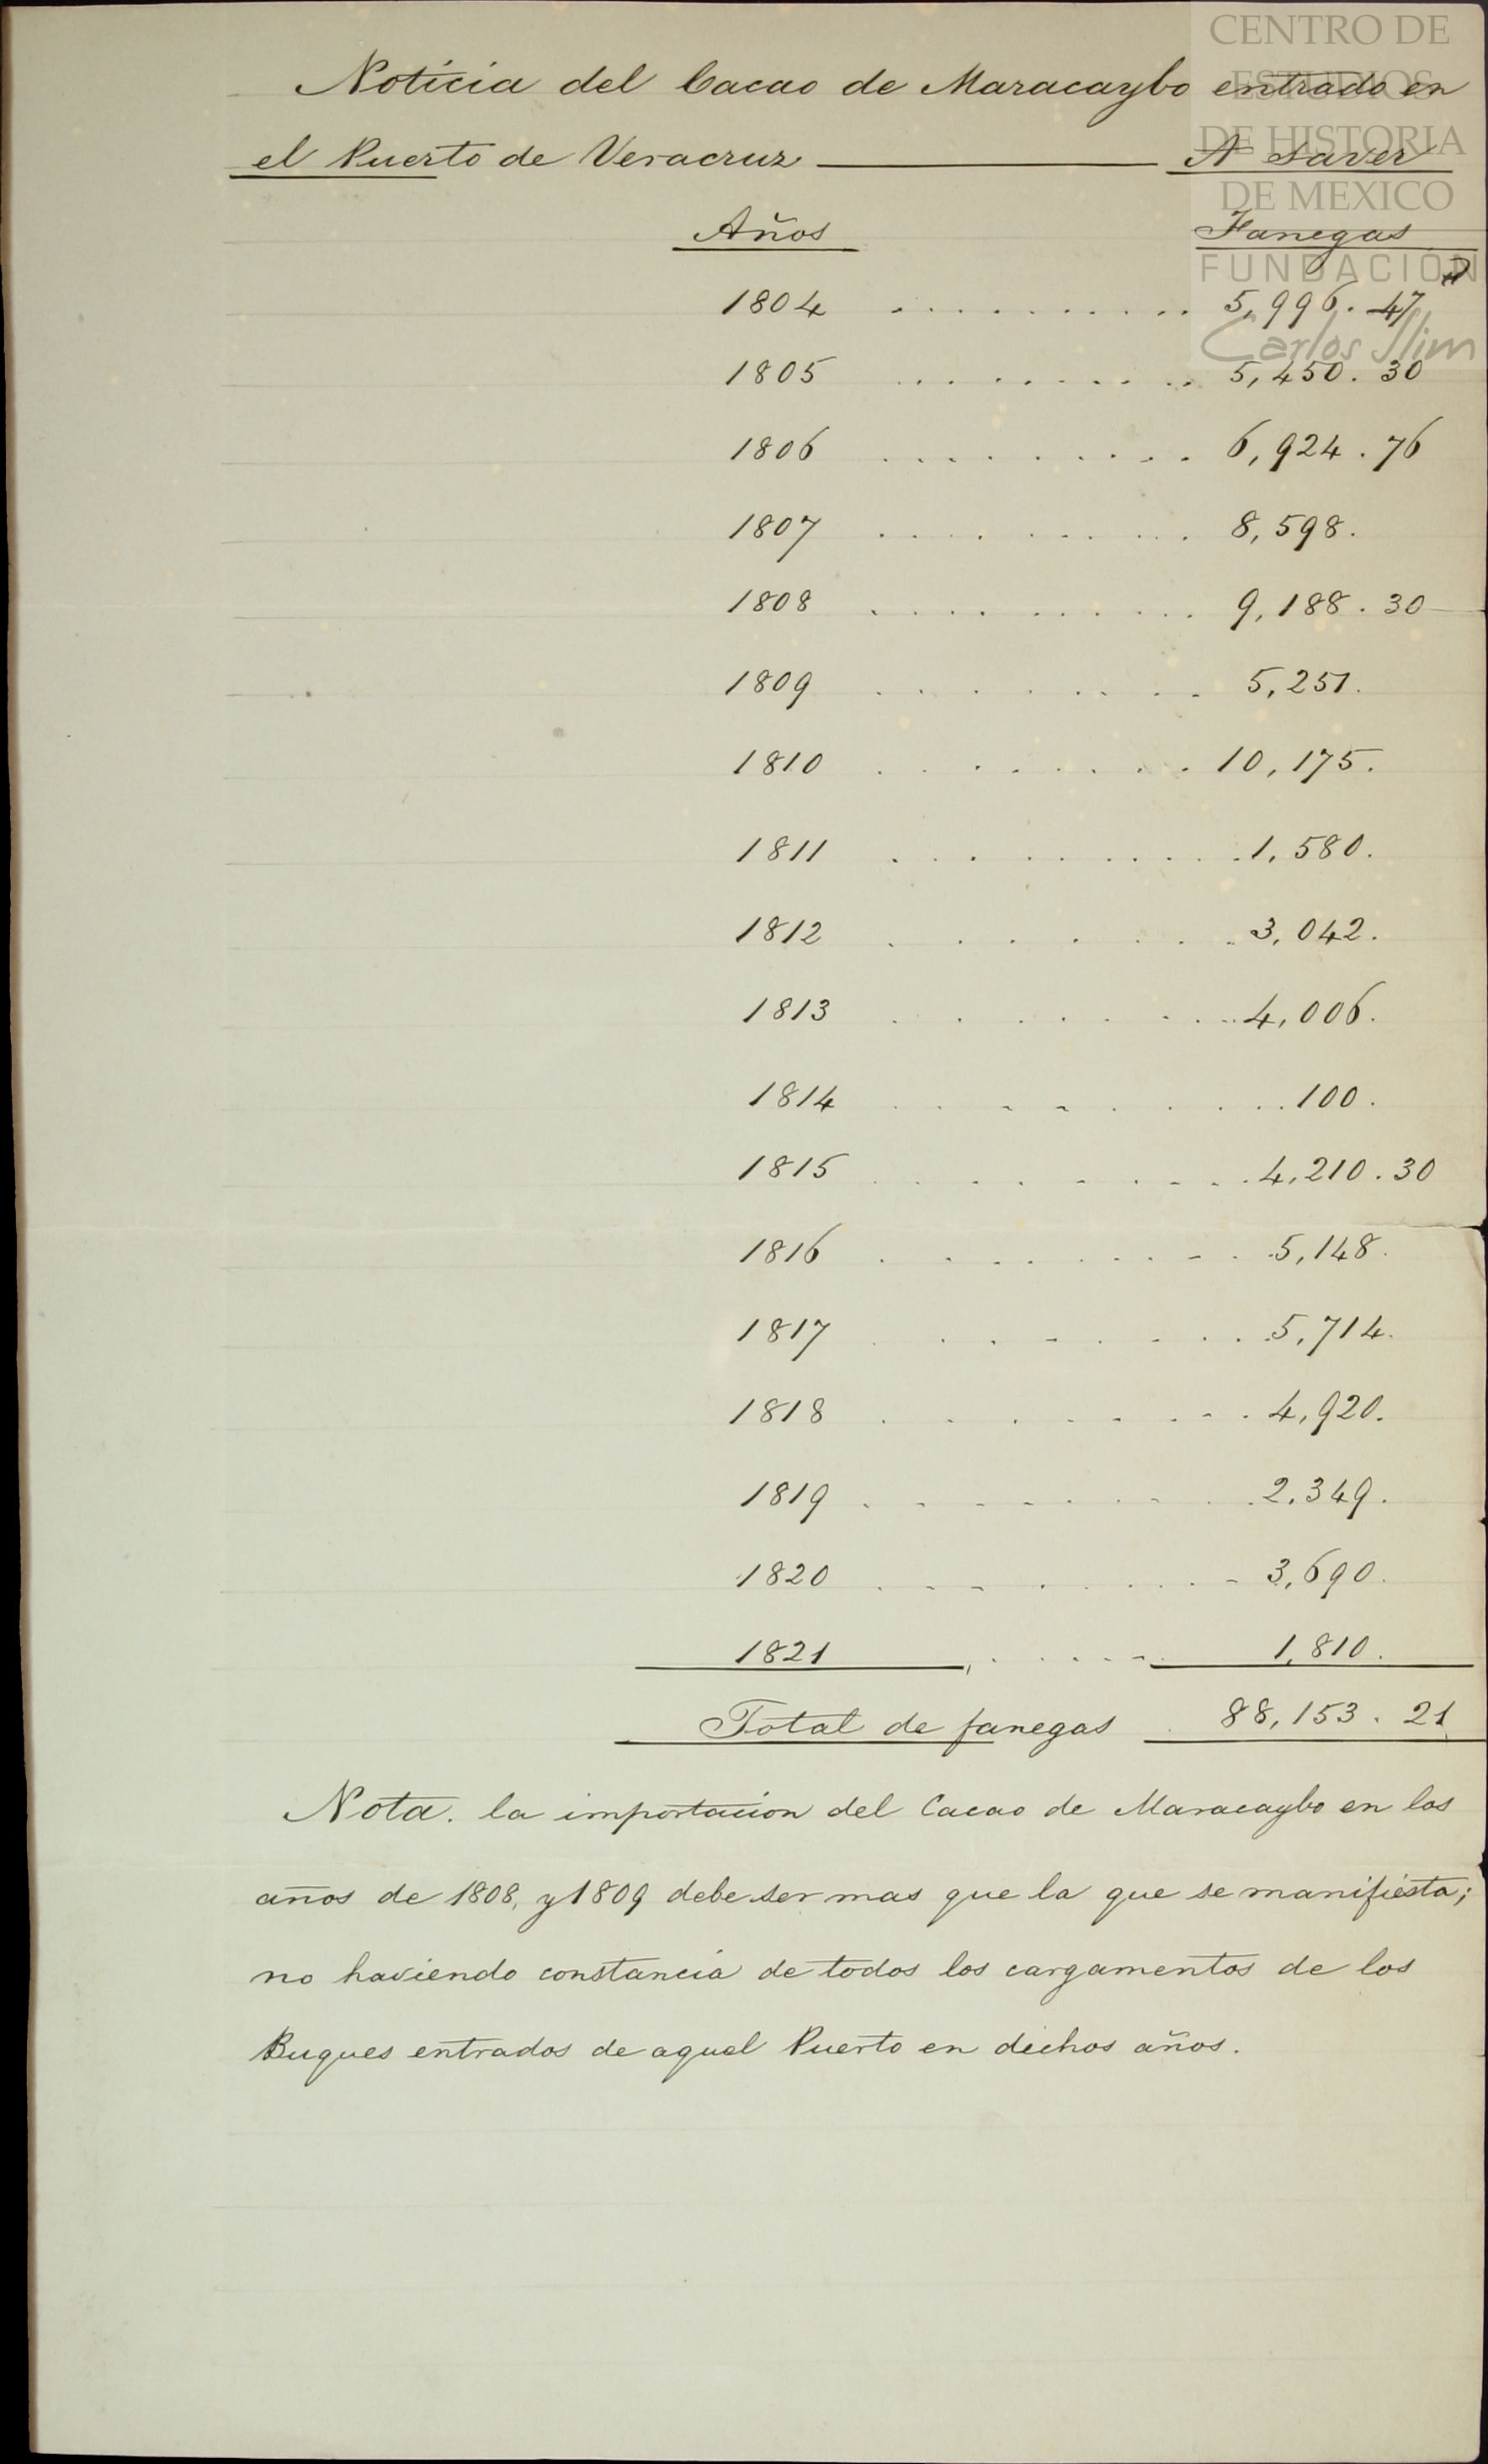 CENTRO DE
ESTUDIOS
DE HISTORIA
DE MEXICO
FUNDACIÓN
Carlos Slim
Noticia del Cacao de Maracaybo entrado en
el Puerto de Veracruz A saver
Años Fanegas
1804 .......... 5,996. 47
1805 .......... 5,450. 30
1806 ......... 6,924. 76
1807 ......... 8,598.
1808 ......... 9,188. 30
1809 ......... 5,251.
1810 ......... 10,175.
1811 ......... 1,580.
1812 ......... 3,042.
1813 ......... 4,006.
1814 ......... 100.
1815 ......... 4,210. 30
1816 ......... 5,148.
1817 ......... 5,714.
1818 ......... 4,920.
1819 ......... 2,349.
1820 ......... 3,690.
1821 ...... 1,810.
Total de fanegas . 88,153. 21
Nota. la importacion del Cacao de Maracaybo en los
años de 1808, y 1809 debe ser mas que la que se manifiesta;
no haviendo constancia de todos los cargamentos de los
Buques entrados de aquel Puerto en dichos años.